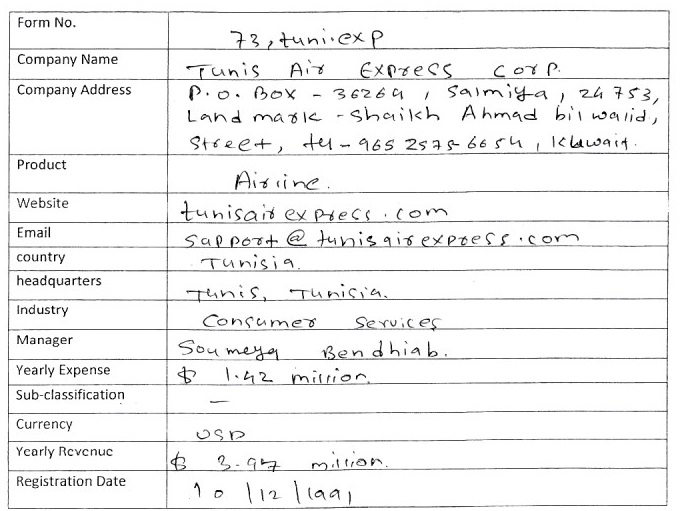 Form No. 73, tuni.exp
Company Name Tunis Air Express Corp.
Company Address P.O. Box - 36269, Salmiya, 24753,
Land mark - Shaikh Ahmad bil walid,
Street, tel - 965 2575 6654, Kuwait.
Product Airline.
Website tunisairexpress.com
Email support@tunisairexpress.com
country Tunisia.
headquarters Tunis, Tunisia.
Industry Consumer Services
Manager Soumeya Bendhiab.
Yearly Expense $ 1.42 million.
Sub-classification —
Currency USD
Yearly Revenue $ 3.97 million.
Registration Date 10/12/1991